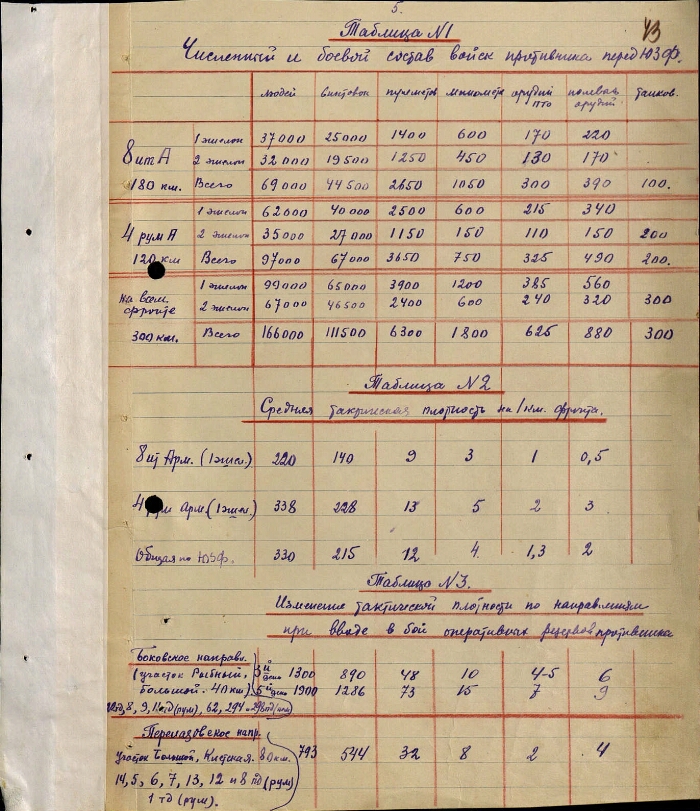 5.
43
Таблица N1
Численный и боевой состав войск противника перед ЮЗФ.
людей винтовок пулеметов минометов орудий ПТО полевых орудий танков.
8 ит А 1 эшелон 37000 25000 1400 600 170 220
2 эшелон 32000 19500 1250 450 130 170
180 км. Всего 69000 44500 2650 1050 300 390 100.
1 эшелон 62000 40000 2500 600 215 340
4 рум А 2 эшелон 35000 27000 1150 150 110 150 200
120 км Всего 97000 67000 3650 750 325 490 200.
на всем фронте 1 эшелон 99000 65000 3900 1200 385 560
2 эшелон 67000 46500 2400 600 240 320 300
300 км. Всего 166000 111500 6300 1800 625 880 300
Таблица N2
Средняя тактическая плотность на 1 км. фронта.
8 ит Арм. (1 эшел.) 220 140 9 3 1 0,5
4 Арм. (1 эшел.) 338 228 13 5 2 3
Общая по ЮЗФ. 330 215 12 4 1,3 2
Таблица N3.
Изменение тактической плотности по направлениям
при вводе в бой оперативных резервов противника
Боковское направл.
(участок Рыбный, 3й день 1300 890 48 10 4-5 6
Большой. 40 км) 5й день 1900 1286 73 15 7 9
8, 9, 11 пд (рум), 62, 294 и 298 пд
Перелазовское напр.
Участок Большой, Клетская. 80 км. 793 544 32 8 2 4
14, 5, 6, 7, 13, 12 и 8 пд (рум)
1 тд (рум).